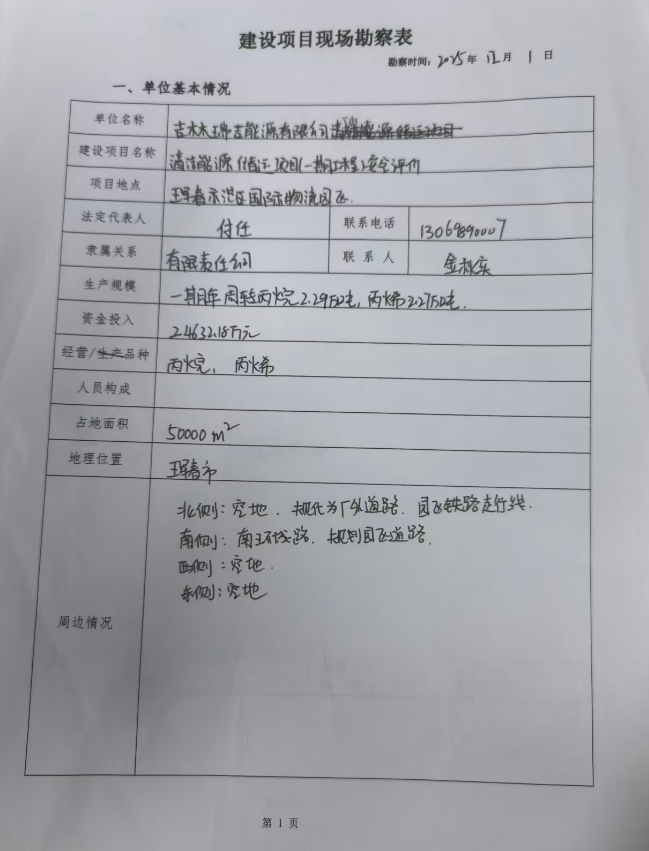 建设项目现场勘察表
勘察时间：2025年 12月 1日
一、单位基本情况
单位名称 吉林瑞吉能源有限公司
建设项目名称 清洁能源储运项目(一期工程)安全评价
项目地点 珲春示范区国际物流园区.
法定代表人 付任 联系电话
隶属关系 有限责任公司 联系人
生产规模 一期年周转丙烷2.29万吨, 丙烯3.27万吨.
资金投入 24632.18万元
经营/生产品种 丙烷、丙烯
人员构成
占地面积 50000 m²
地理位置 珲春市
周边情况
北侧: 空地. 规化为厂外道路. 园区铁路走行线.
南侧: 南环线路. 规划园区道路.
西侧: 空地.
东侧: 空地
第 1 页